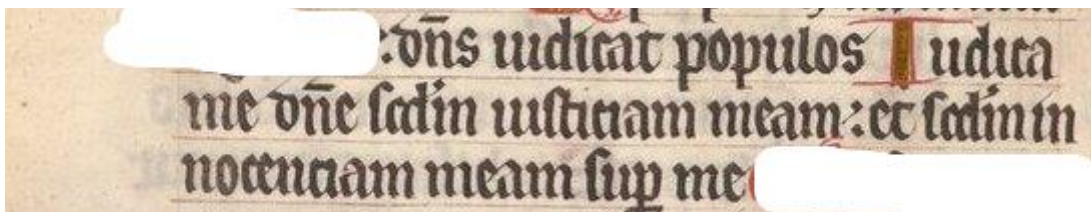 : dn̄s iudicat populos Iudica
me dn̄e scd̄m iusticiam meam : et scd̄m in
nocenciam meam sup̱ me